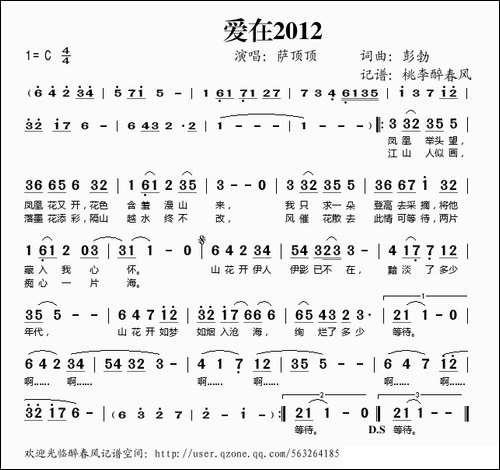 爱在2012
1=C 4/4 演唱：萨顶顶 词曲：彭勃
记谱：桃李醉春风
(6 4 2 34 | 5 71 5 - | 1 61 71 27 | 734 6135 |
32 17 6 - | 6 - 7 - | 1 - - - | 1 - - -) ‖: 3 32 35 5 |
凤凰 举头望，
江山 人似画，
36 65 6 32 | 1 61 2 35 | 3 36 65 3 | 36 65 32 32 |
凤凰花又开，花色 含羞漫山 来， 我只求一朵 登高去采摘，将他
落墨花添彩，隔山 越水终不 改， 风催花散去 此情可等待，两片
1 61 2 03 | 31 - - - | 6 42 34 | 54 323 - | 4 17 7 12 |
藏入我心 怀。 山花开伊人 伊影已不在， 黯淡了多少
痴心一片 海。
21 - - - | 6 42 34 | 57 12 - | 65 43 2 | 67 65 12 | 21 1 - 0 |
年代， 山花开如梦 如烟入沧海， 绚烂了多少 等待。
6 4 2 34 | 54 32 3 - | 4 17 7 12 | 21 - - - | 6 4 2 34 | 57 12 - |
啊…… 啊…… 啊…… 啊…… 啊…… 啊……
32 17 6 - | (6 3 2 7 | 1 2 7 - | 6 - - -) :‖ 21 1 - 0 :‖ 21 1 - 0 ‖
啊…… 等待。 D.S 等待。
欢迎光临醉春风记谱空间：http://user.qzone.qq.com/563264185